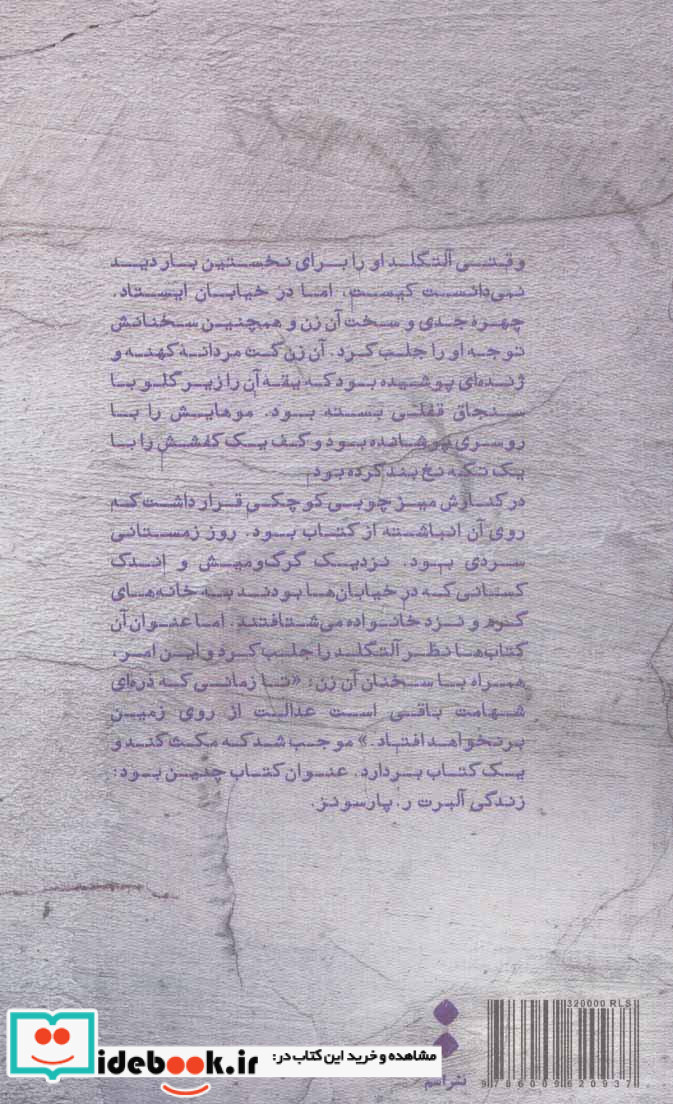 وقتی آلتگلد او را برای نخستین بار دید
نمی‌دانست کیست، اما در خیابان ایستاد.
چهره جدی و سخت آن زن و همچنین سخنانش
توجه او را جلب کرد. آن زن کت مردانهٔ کهنه و
ژنده‌ای پوشیده بود که یقه آن را زیر گلو با
سنجاق قفلی بسته بود. موهایش را با
روسری پوشانده بود و کف یک کفشش را با
یک تکه نخ بند کرده بود.
در کنارش میز چوبی کوچکی قرار داشت که
روی آن انباشته از کتاب بود. روز زمستانی
سردی بود. نزدیک گرگ‌ومیش و اندک
کسانی که در خیابان‌ها بودند به خانه‌های
گرم و نزد خانواده می‌شتافتند. اما عنوان آن
کتاب‌ها نظر آلتگلد را جلب کرد و این امر،
همراه با سخنان آن زن: «تا زمانی که ذره‌ای
شهامت باقی است عدالت از روی زمین
برنخواهد افتاد.» موجب شد که مکث کند و
یک کتاب بردارد. عنوان کتاب چنین بود:
زندگی آلبرت ر. پارسونز.
320000 RLS
9786009620937
نشر اسم
مشاهده و خرید این کتاب در:
idebook.ir